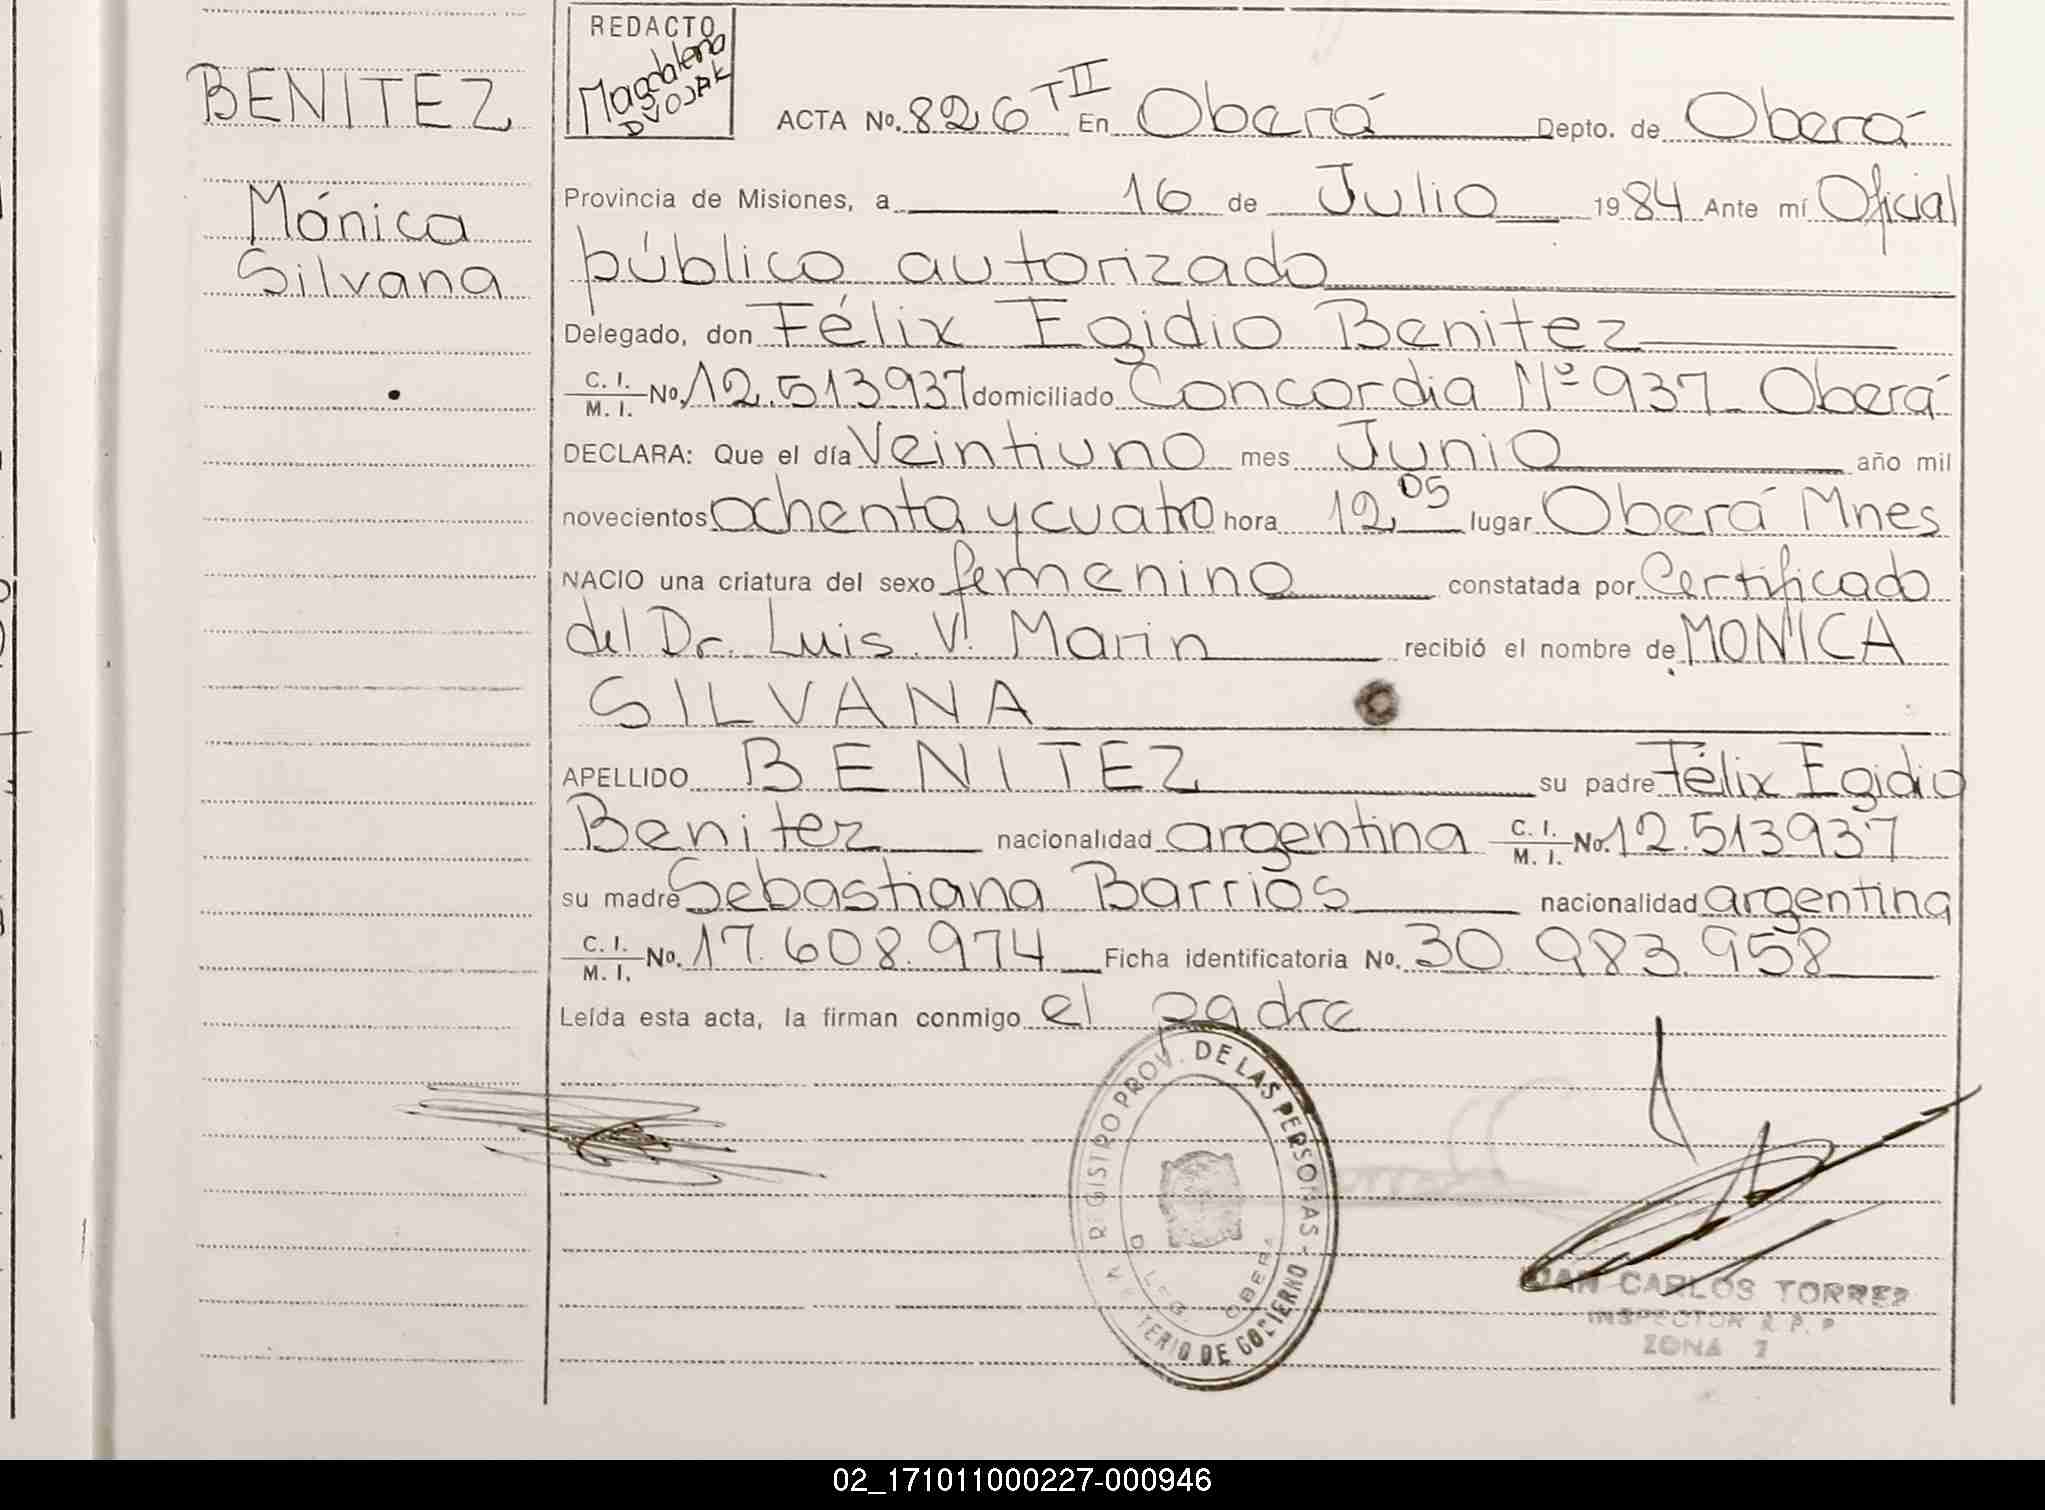 BENITEZ
Mónica
Silvana
REDACTO
Magdalena
DVOJAK
ACTA No. 826 TII En Oberá Depto. de Oberá
Provincia de Misiones, a 16 de Julio 1984 Ante mí Oficial
público autorizado
Delegado, don Félix Egidio Benitez
C. I. / M. I. No. 12.513937 domiciliado Concordia Nº 937 - Oberá
DECLARA: Que el día Veintiuno mes Junio año mil
novecientos ochenta y cuatro hora 12,05 lugar Oberá Mnes
NACIO una criatura del sexo femenino constatada por Certificado
del Dr. Luis. V. Marin recibió el nombre de MONICA
SILVANA
APELLIDO BENITEZ su padre Félix Egidio
Benitez nacionalidad argentina C. I. / M. I. No. 12.513937
su madre Sebastiana Barrios nacionalidad argentina
C. I. / M. I. No. 17.608.974 Ficha identificatoria No. 30.983.958
Leída esta acta, la firman conmigo el padre
REGISTRO PROV. DE LAS PERSONAS -
DE GOBIERNO
OBERA
JUAN CARLOS TORREZ
INSPECTOR R. P. P
ZONA 2
02_171011000227-000946